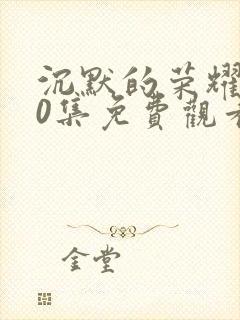 沉默的荣耀
0集免費觀看
金堂